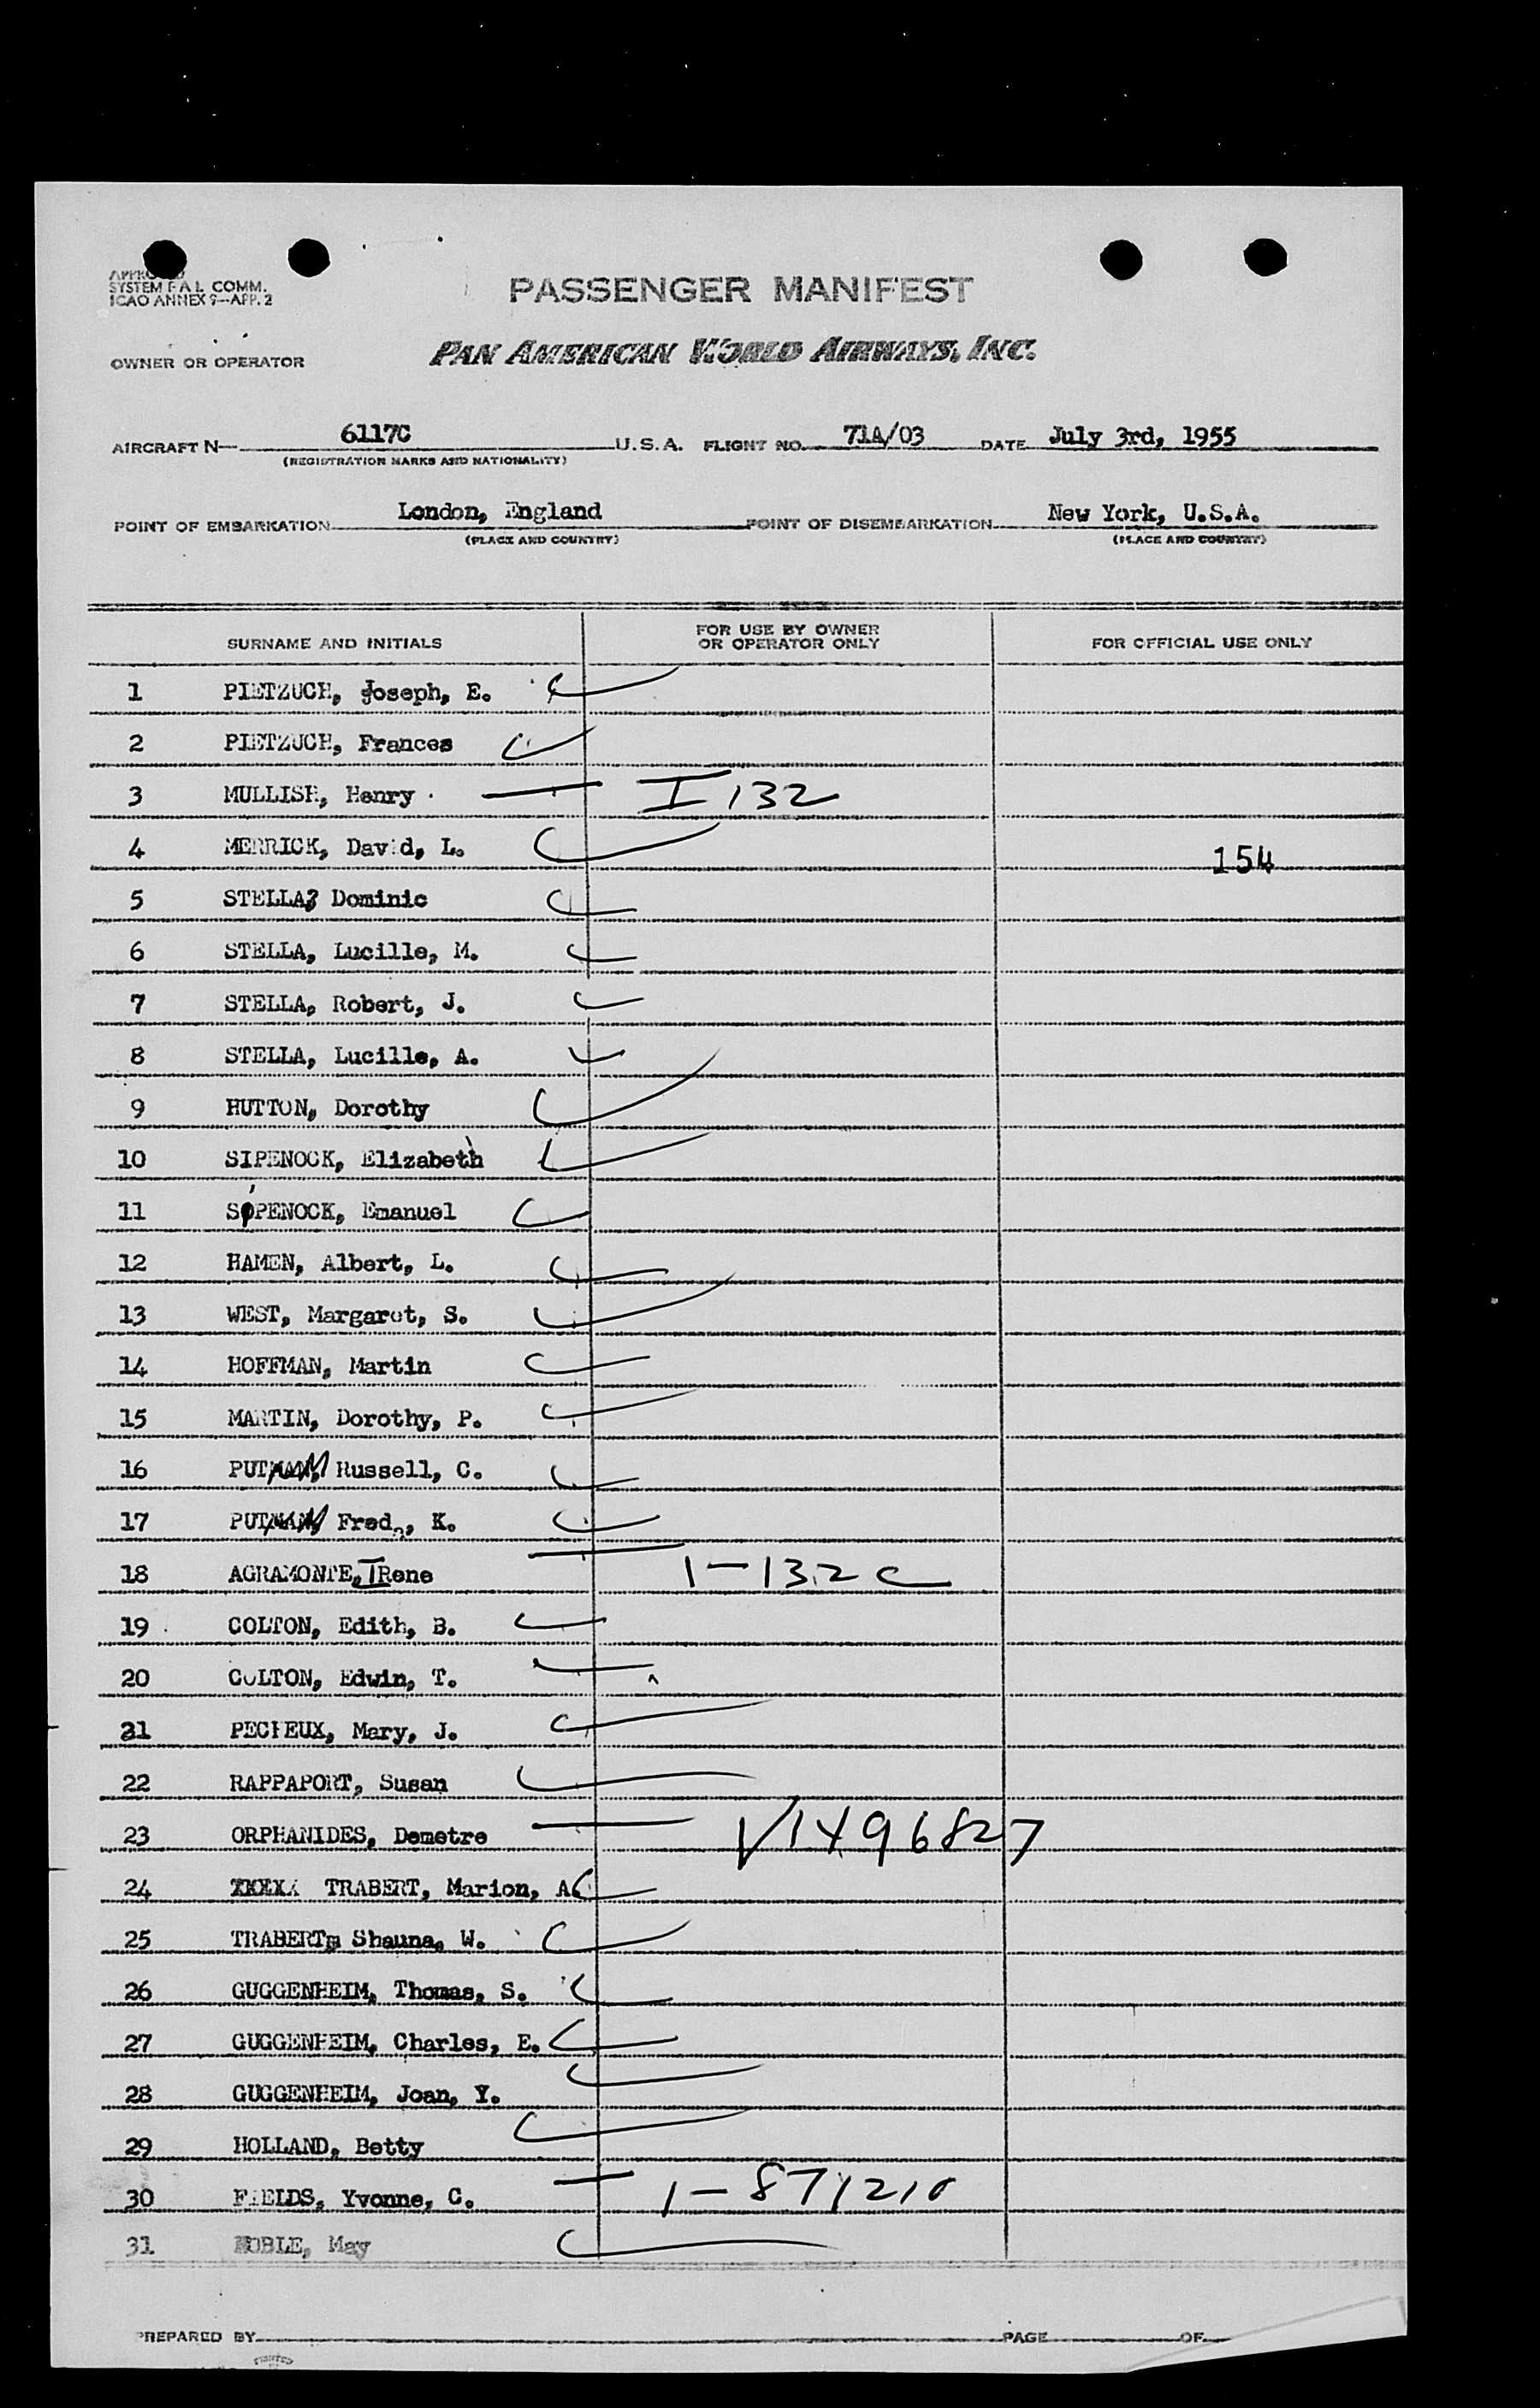 APPROVED
SYSTEM F A L COMM.
ICAO ANNEX 9—APP. 2
PASSENGER MANIFEST
OWNER OR OPERATOR PAN AMERICAN WORLD AIRWAYS, INC.
AIRCRAFT N— 6117C U.S.A. FLIGHT NO. 71A/03 DATE July 3rd, 1955
(REGISTRATION MARKS AND NATIONALITY)
POINT OF EMBARKATION London, England POINT OF DISEMBARKATION New York, U.S.A.
(PLACE AND COUNTRY) (PLACE AND COUNTRY)
SURNAME AND INITIALS FOR USE BY OWNER OR OPERATOR ONLY FOR OFFICIAL USE ONLY
1 PIETZUCH, Joseph, E.
2 PIETZUCH, Frances
3 MULLISH, Henry I 132
4 MERRICK, David, L. 154
5 STELLA, Dominic
6 STELLA, Lucille, M.
7 STELLA, Robert, J.
8 STELLA, Lucille, A.
9 HUTTON, Dorothy
10 SIPENOCK, Elizabeth
11 SIPENOCK, Emanuel
12 HAMEN, Albert, L.
13 WEST, Margaret, S.
14 HOFFMAN, Martin
15 MARTIN, Dorothy, P.
16 Russell, C.
17 Fred, K.
18 AGRAMONTE, IRene 1-132 C
19 COLTON, Edith, B.
20 COLTON, Edwin, T.
21 PECHEUX, Mary, J.
22 RAPPAPORT, Susan
23 ORPHANIDES, Demetre V1496827
24 TRABERT, Marion, A
25 TRABERT, Shauna, W.
26 GUGGENHEIM, Thomas, S.
27 GUGGENHEIM, Charles, E.
28 GUGGENHEIM, Joan, Y.
29 HOLLAND, Betty
30 FIELDS, Yvonne, C.
31 NOBLE, May
PREPARED BY PAGE OF